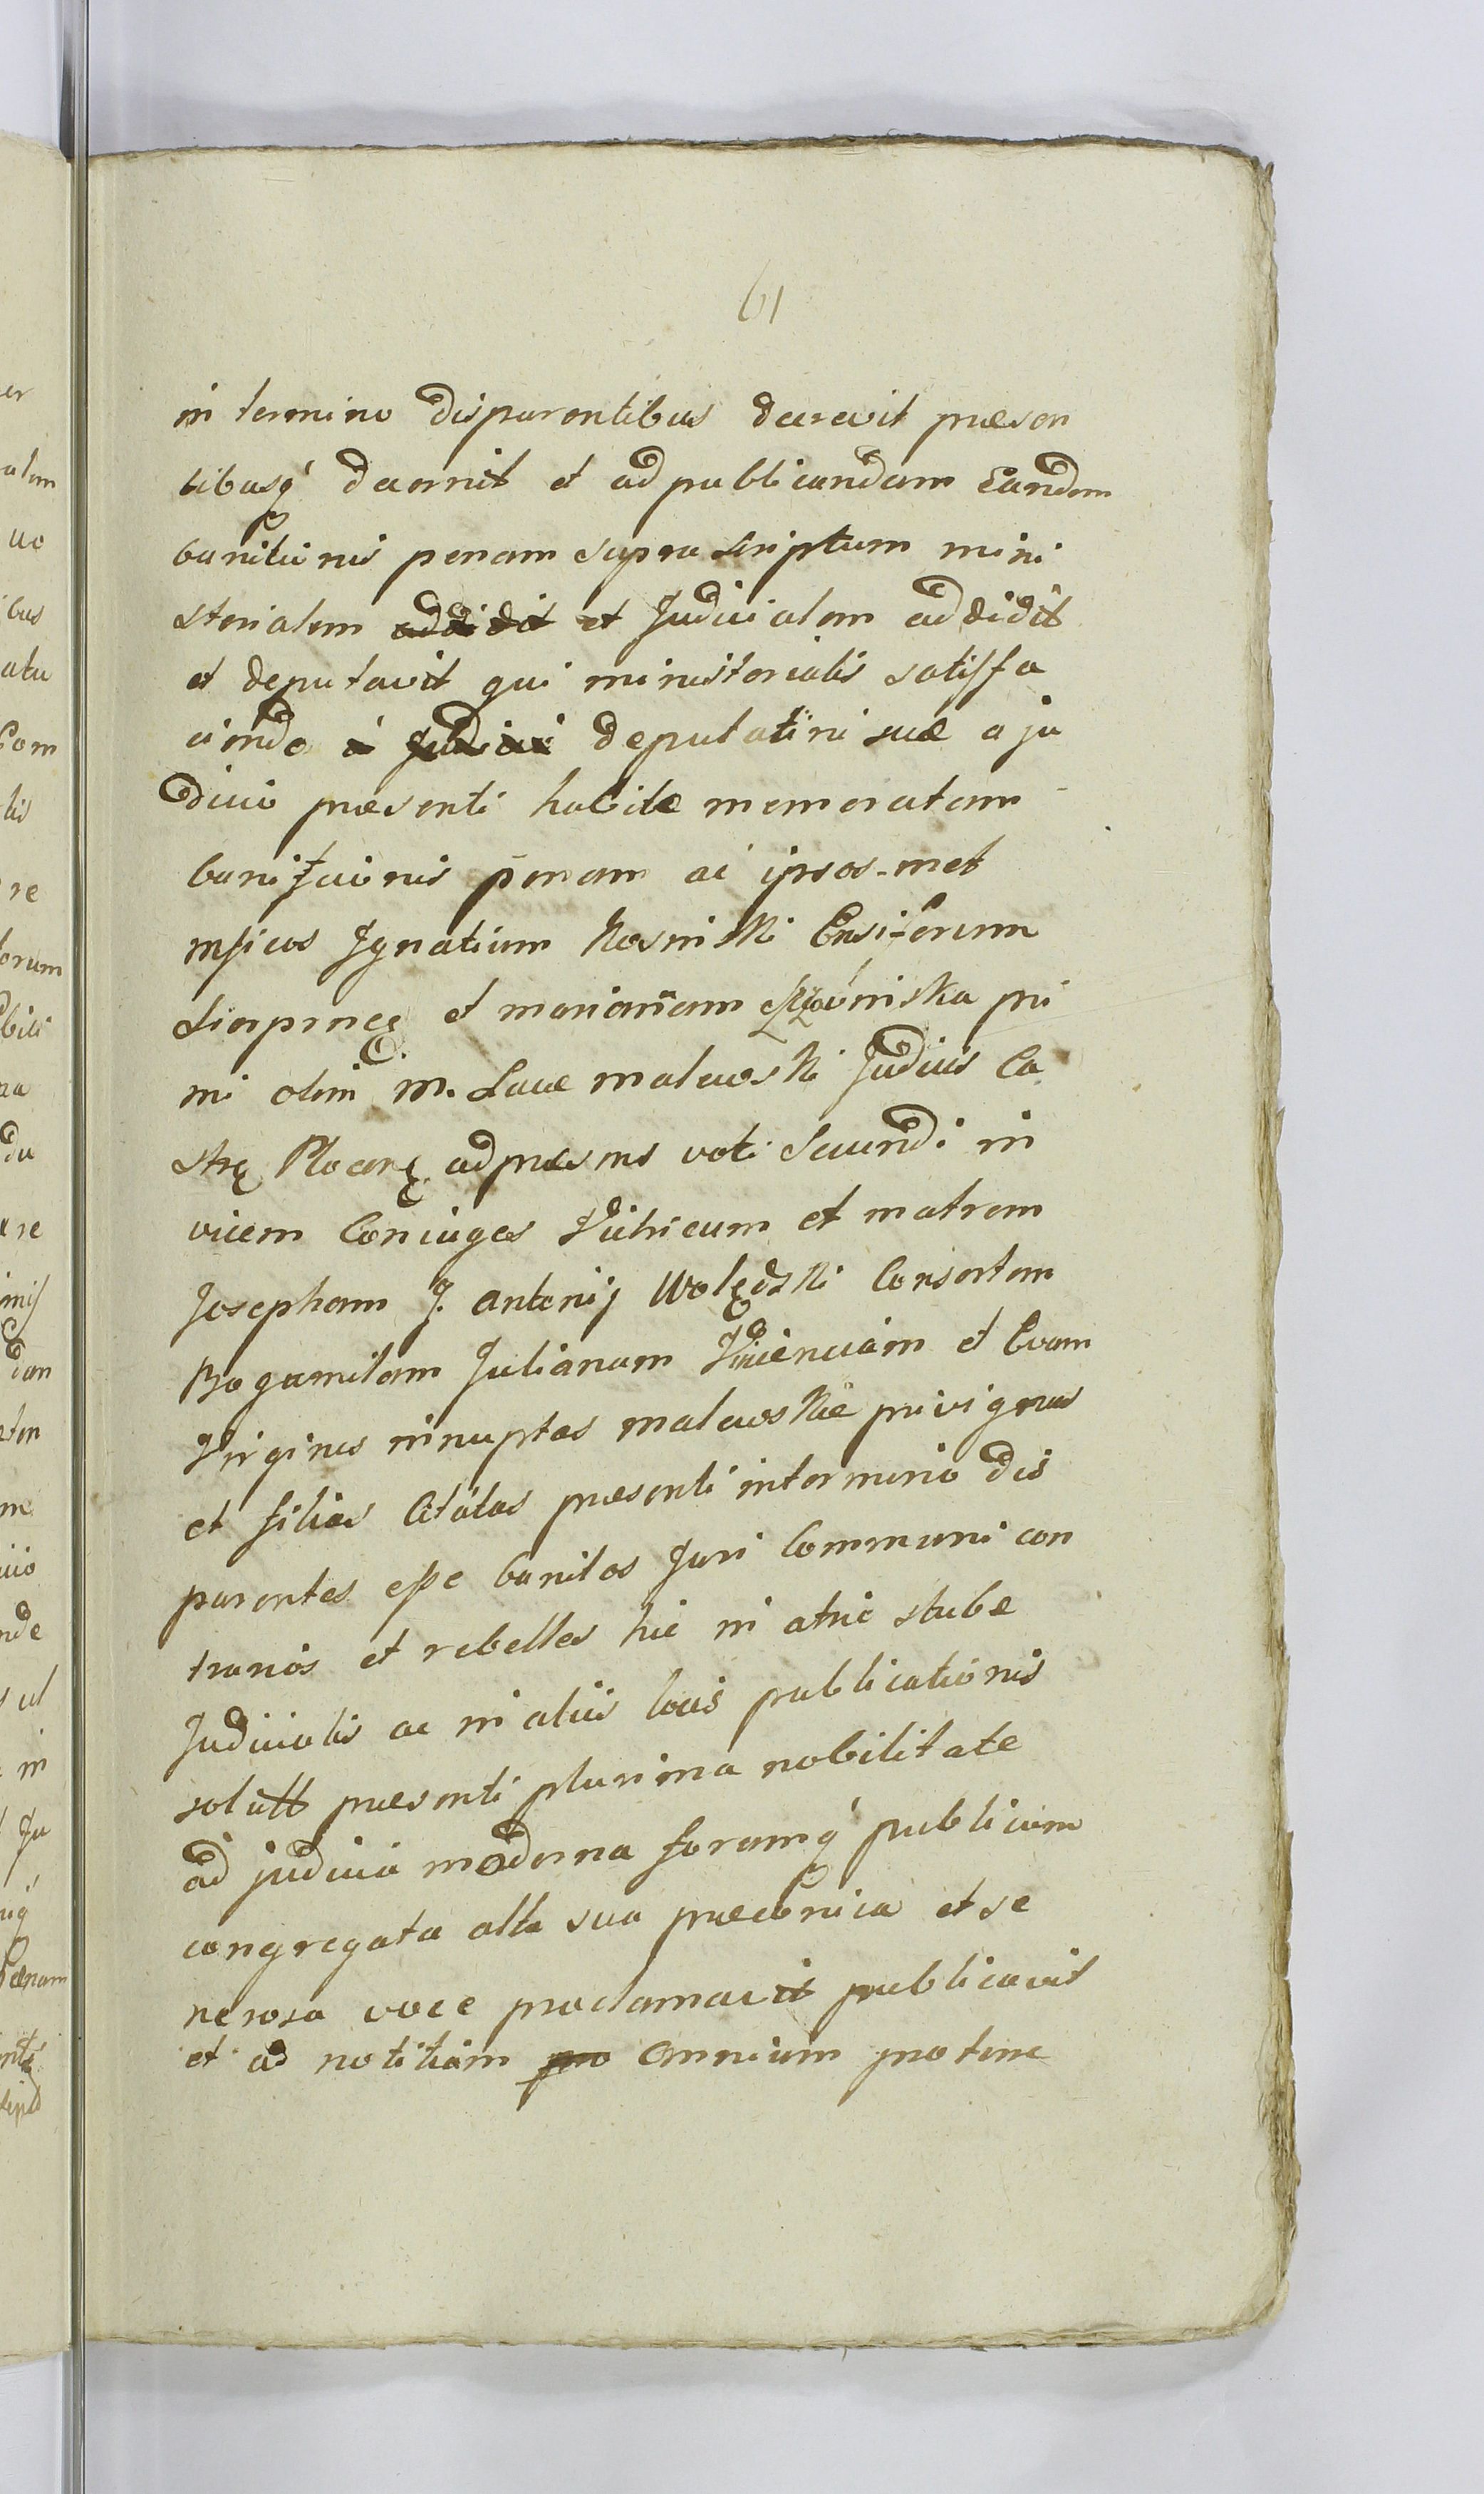 61
in termino disparentibus decrevit præsen
tibusq́ decernit et ad publicandam Eandem
banitionis penam supra scriptum mini
sterialem addidit et Judicialem addidit
et deputavit qui ministerialis satisfa
ciendo à Judicii deputatini suæ a ju
dicio præsenti habitæ memoratam
banitionis penam ac ipsos-met
mficos Ignatium Kosinski Ensiferum
Sierpmcę et mariañam pri
mi olim M. Lucæ malewski Judicis Ca
strę Plocenę ad præsens voti Secundi in
vicem Coniuges Vitricum et matrem
Josepham J. antonij Wolędzki Consortem
Bogumilam Julianam Vincentiam et Evam
Virgines innuptas malewskie privignas
et filias Citatas præsenti in termino dis
parentes esse banitos Juri Communi con
trarios et rebelles hic in atrio stubæ
Judicialis ac in aliis locis publicationis
solitt præsenti plurima nobilitate
ad judicia moderna forumq́ publicum
congregata alta sua præconica et se
nerosa voce proclamavit publicavit
et ad notitiam pro omnium protune